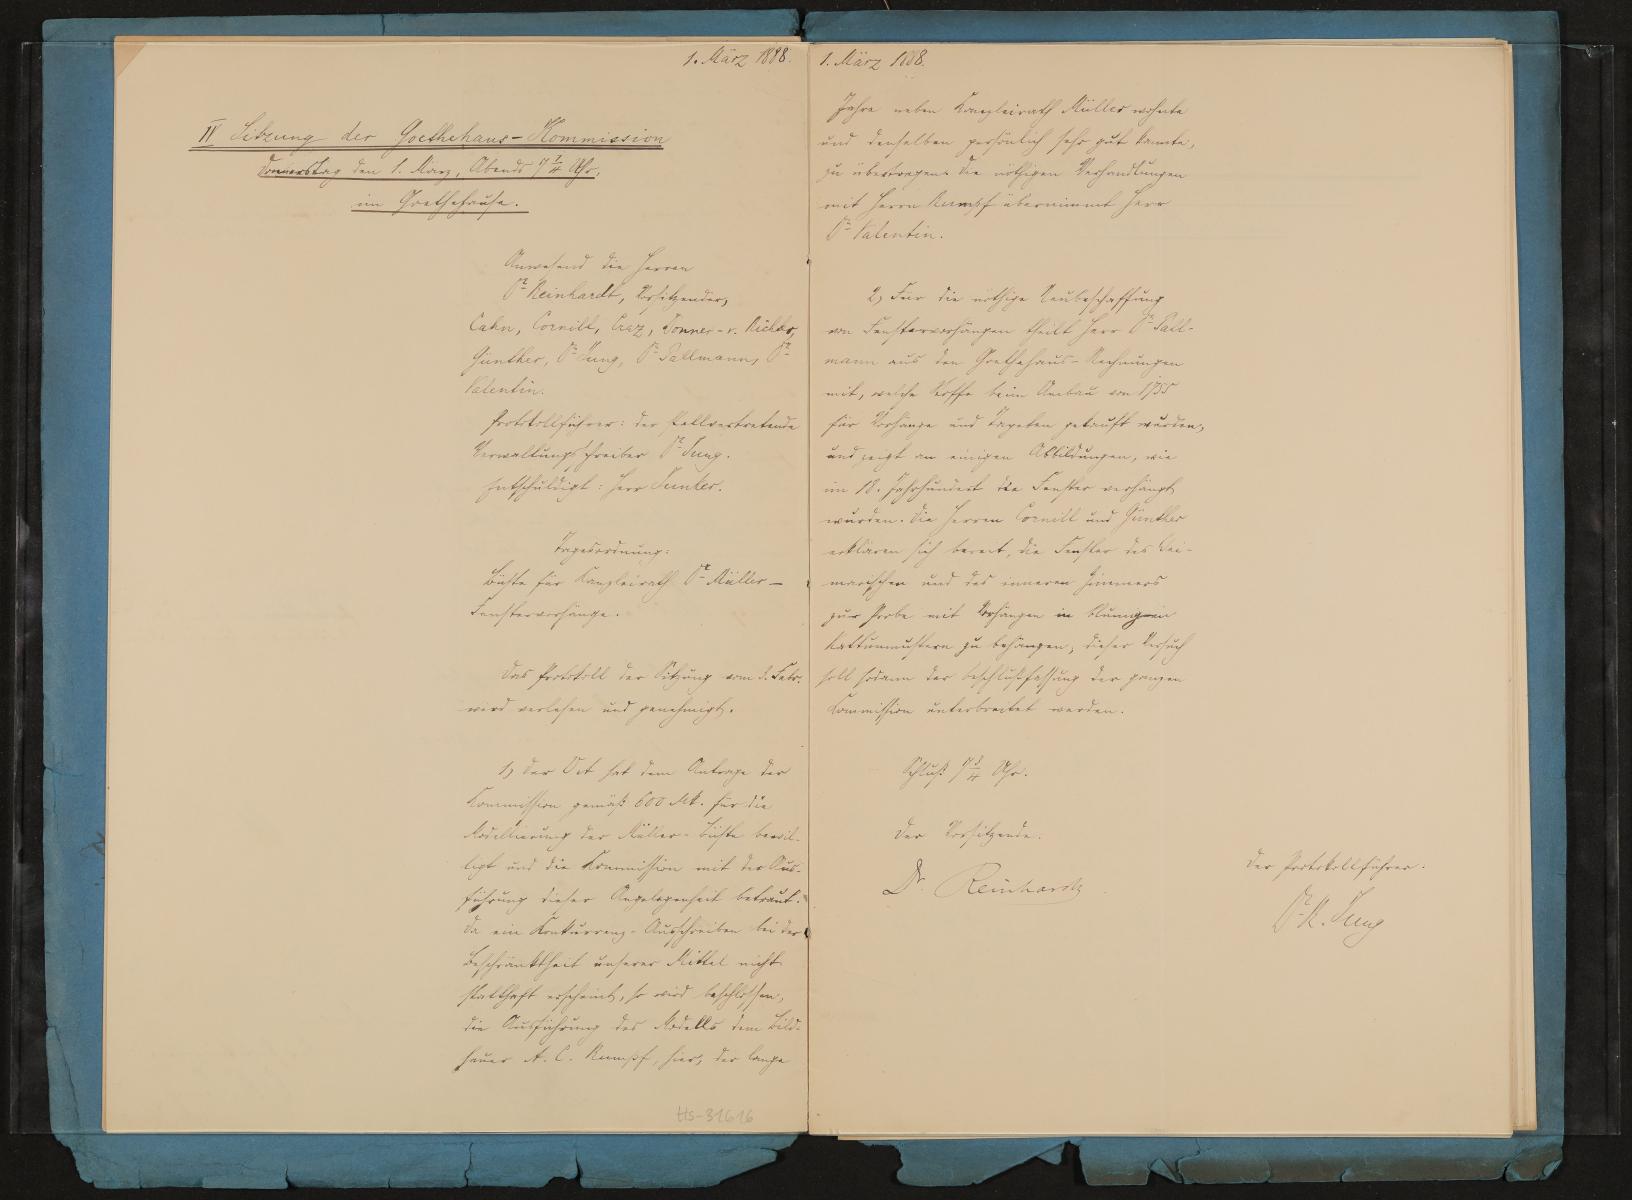 1. März 1888.
IV Sitzung der Goethehaus-Kommission
Donnerstag den 1. März, Abends 7 1/4 Uhr,
im Goethehause.
Anwesend die Herren
Dr. Reinhardt, Vorsitzender,
Cahn, Cornill, Creiz, Donner-v. Richter,
Günther, Dr. Jung, Dr. Pallmann, Dr.
Valentin.
Protokollführer: der stellvertretende
Verwaltungsschreiber Dr. Jung.
Entschuldigt: Herr Junker.
Tagesordnung:
Büste für Kanzleirath Dr. Müller –
Fenstervorhänge.
Das Protokoll der Sitzung vom 2. Febr.
wird verlesen und genehmigt.
1, Der V.A. hat dem Antrage der
Kommission gemäß 600 Mk. für die
Modellierung der Müller-Büste bewil-
ligt und die Kommission mit der Aus-
führung dieser Angelegenheit betraut.
Da ein Konkurrenz-Ausschreiben bei der
Beschränktheit unserer Mittel nicht
statthaft erscheint, so wird beschlossen,
die Ausführung des Modells dem Bild-
hauer A. C. Rumpf, hier, der lange
Hs-31616
1. März 1888.
Jahre neben Kanzleirath Müller wohnte
und denselben persönlich sehr gut kannte,
zu übertragen. Die nöthigen Verhandlungen
mit Herrn Rumpf übernimmt Herr
Dr. Valentin.
2, Für die nöthige Neubeschaffung
von Fenstervorhängen theilt Herr Dr. Pall-
mann aus den Goethehaus-Rechnungen
mit, welche Stoffe beim Umbau von 1755
für Vorhänge und Tapeten gekauft wurden,
und zeigt an einigen Abbildungen, wie
im 18. Jahrhundert die Fenster verhängt
wurden. Die Herren Cornill und Günther
erklären sich bereit, die Fenster des Wei-
marischen und des inneren Zimmers
zur Probe mit Vorhängen in blumigen
Kattunmustern zu behängen; dieser Versuch
soll sodann der Beschlußfassung der ganzen
Commission unterbreitet werden.
Schluß 7 3/4 Uhr.
Der Vorsitzende:
Dr. Reinhardt
Der Protokollführer:
Dr. R. Jung